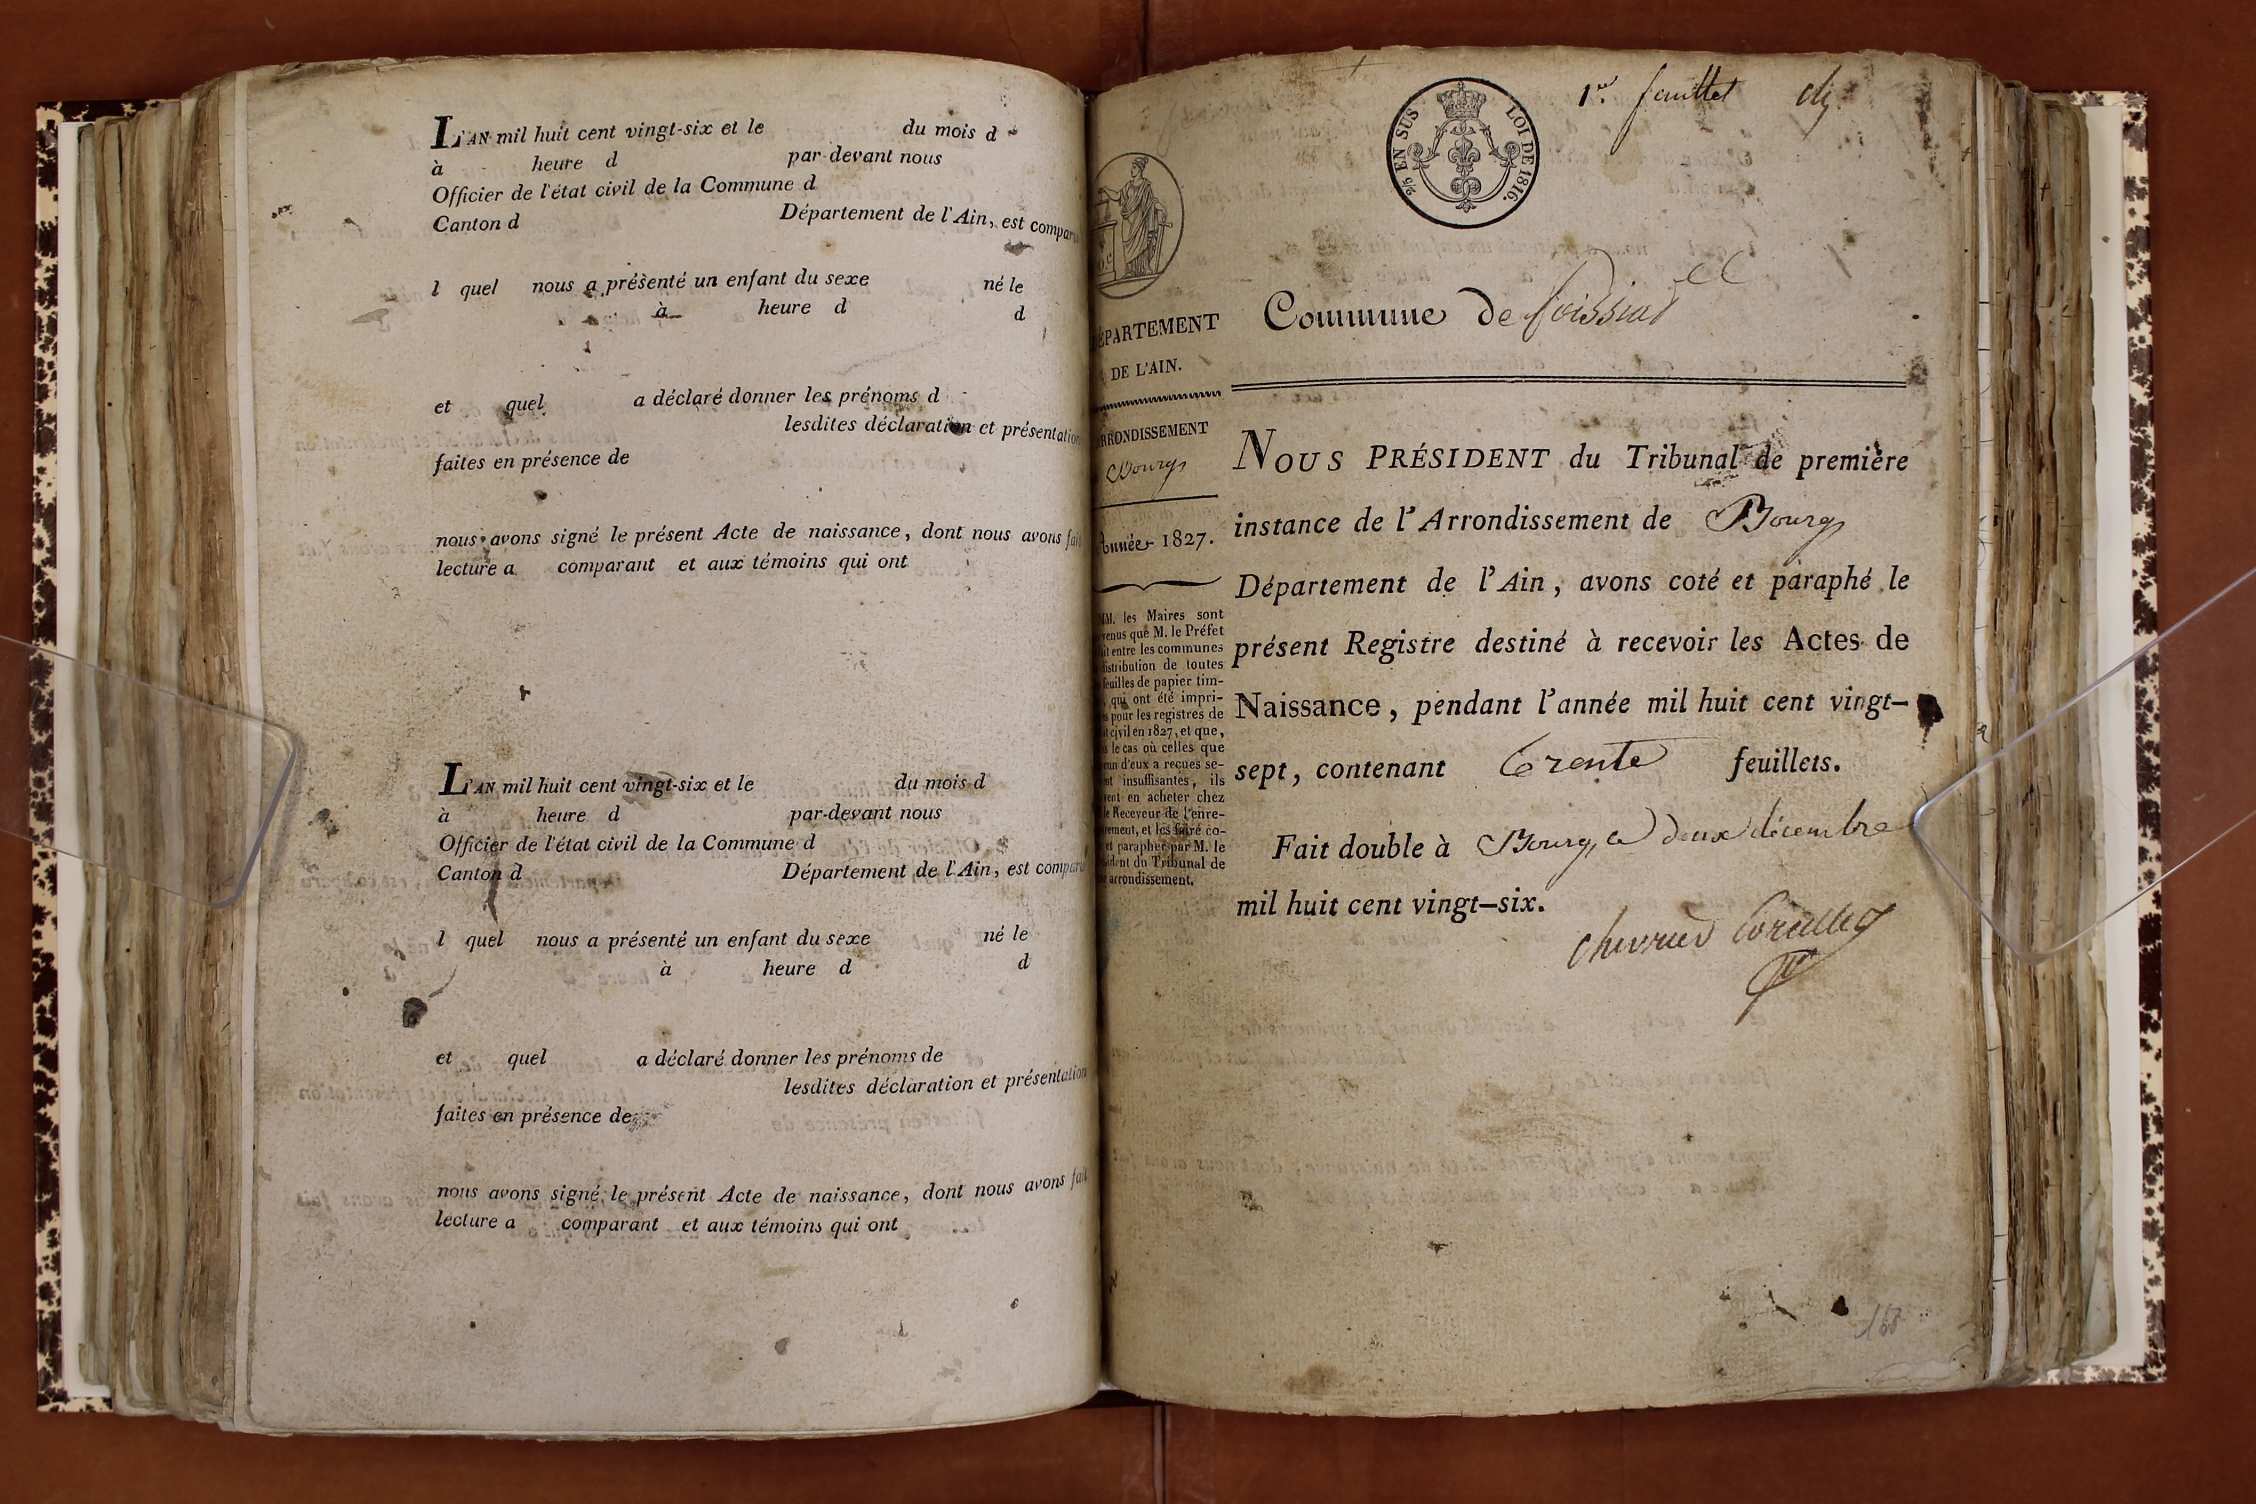 L'AN mil huit cent vingt-six et le du mois d
à heure d par-devant nous
Officier de l'état civil de la Commune d
Canton d Département de l'Ain, est comparu
l quel nous a présenté un enfant du sexe né le
à heure d d
et quel a déclaré donner les prénoms d
lesdites déclaration et présentation
faites en présence de
nous avons signé le présent Acte de naissance, dont nous avons fait
lecture a comparant et aux témoins qui ont
L'AN mil huit cent vingt-six et le du mois d
à heure d par-devant nous
Officier de l'état civil de la Commune d
Canton d Département de l'Ain, est comparu
l quel nous a présenté un enfant du sexe né le
à heure d d
et quel a déclaré donner les prénoms de
lesdites déclaration et présentation
faites en présence de
nous avons signé le présent Acte de naissance, dont nous avons fait
lecture a comparant et aux témoins qui ont
1er feuillet
EN SUS LOI DE 1816.
DÉPARTEMENT
DE L'AIN.
ARRONDISSEMENT
Bourg
Année 1827.
MM. les Maires sont
venus que M. le Préfet
it entre les communes
distribution de toutes
feuilles de papier tim-
qui ont été impri-
s pour les registres de
t civil en 1827, et que,
s le cas où celles que
un d'eux a reçues se-
nt insuffisantes, ils
ront en acheter chez
le Receveur de l'enre-
rement, et les faire co-
et parapher par M. le
sident du Tribunal de
arrondissement.
Commune de Foissiat
NOUS PRÉSIDENT du Tribunal de première
instance de l'Arrondissement de Bourg
Département de l'Ain, avons coté et paraphé le
présent Registre destiné à recevoir les Actes de
Naissance, pendant l'année mil huit cent vingt-
sept, contenant trente feuillets.
Fait double à Bourg, le deux décembre
mil huit cent vingt-six.
168